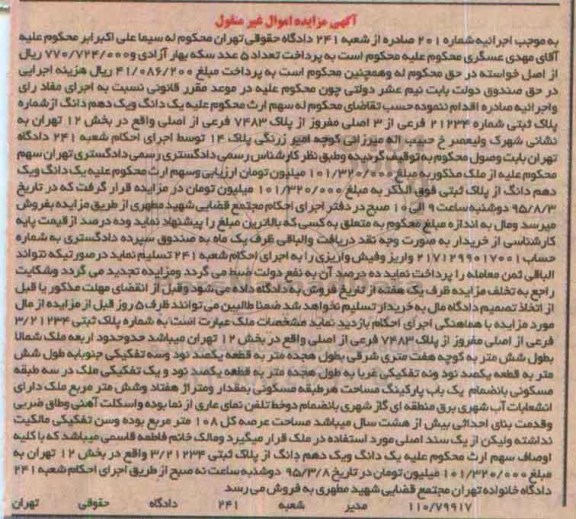 آگهی مزایده اموال غیر منقول
به موجب اجرائیه شماره ۲۰۱ صادره از شعبه ۲۴۱ دادگاه حقوقی تهران محکوم له سیما علی اکبرابر محکوم علیه
آقای مهدی عسگری محکوم علیه محکوم است به پرداخت تعداد ۵ عدد سکه بهار آزادی و ۷۷۰/۷۲۴/۰۰۰ ریال
از اصل خواسته در حق محکوم له وهمچنین محکوم است به پرداخت مبلغ ۴۱/۰۸۶/۲۰۰ ریال هزینه اجرایی
در حق صندوق دولت بابت نیم عشر دولتی چون محکوم علیه در موعد مقرر قانونی نسبت به اجرای مفاد رای
واجرائیه صادره اقدام ننموده حسب تقاضای محکوم له سهم ارث محکوم علیه یک دانگ ویک دهم دانگ ازشماره
پلاک ثبتی شماره ۲۱۲۳۴ فرعی از ۳ اصلی مفروز از پلاک ۷۴۸۳ فرعی از اصلی واقع در بخش ۱۲ تهران به
نشانی شهرک ولیعصر خ حبیب اله میرزائی کوچه امیر زرنگی پلاک ۱۴ توسط اجرای احکام شعبه ۲۴۱ دادگاه
تهران بابت وصول محکوم به توقیف گردیده وطبق نظر کارشناس رسمی دادگستری رسمی دادگستری تهران سهم
محکوم علیه از ملک مذکور به مبلغ ۱۰۱/۳۲۰/۰۰۰ میلیون تومان ارزیابی وسهم ارث محکوم علیه یک دانگ ویک
دهم دانگ از پلاک ثبتی فوق الذکر به مبلغ ۱۰۱/۳۲۰/۰۰۰ میلیون تومان در مزایده قرار گرفت که در تاریخ
۹۵/۸/۳ دوشنبه ساعت ۹ الی ۱۰ صبح در دفتر اجرای احکام مجتمع قضایی شهید مطهری از طریق مزایده بفروش
میرسد ومال به اندازه مبلغ محکوم به متعلق به کسی که بالاترین مبلغ را پیشنهاد نماید وده درصد از قیمت پایه
کارشناسی از خریدار به صورت وجه نقد دریافت والباقی ظرف یک ماه به صندوق سپرده دادگستری به شماره
حساب ۲۱۷۱۲۹۹۰۱۷۰۰۱ واریز وفیش واریزی را به اجرای احکام شعبه ۲۴۱ تسلیم نماید در صورتیکه نتواند
الباقی ثمن معامله را پرداخت نماید ده درصد آن به نفع دولت ضبط می گردد ومزایده تجدید می گردد وشکایت
راجع به تخلف مزایده ظرف یک هفته از تاریخ فروش به دادگاه داده می شود وقبل از انقضای مهلت مذکور یا قبل
از اتخاذ تصمیم دادگاه مال به خریدار تسلیم نخواهد شد ضمنا طالبین می توانند ظرف ۵ روز قبل از مزایده از مال
مورد مزایده با هماهنگی اجرای احکام بازدید نماید مشخصات ملک عبارت است به شماره پلاک ثبتی ۳/۲۱۲۳۴
فرعی از اصلی مفروز از پلاک ۷۴۸۳ فرعی از اصلی واقع در بخش ۱۲ تهران میباشد حدوحدود اربعه ملک شمالا
بطول شش متر به کوچه هفت متری شرقی بطول هجده متر به قطعه یکصد نود وسه تفکیکی جنوبابه طول شش
متر به قطعه یکصد نود ونه تفکیکی غربا به طول هجده متر به قطعه یکصد نود و یک تفکیکی ملک در سه طبقه
مسکونی بانضمام یک باب پارکینگ مساحت هرطبقه مسکونی بمقدار ومتراژ هفتاد وشش متر مربع ملک دارای
انشعابات آب شهری برق منطقه ای گاز شهری بانضمام دوخط تلفن نمای عاری از نما بوده واسکلت آهنی وطاق ضربی
وقدمت بنای احداثی بیش از هشت سال میباشد مساحت عرصه کل ۱۰۸ متر مربع بوده وسن تفکیکی مالکیت
نداشته ولیکن از یک سند اصلی مورد استفاده در ملک قرار میگیرد ومالک خانم فاطمه قاسمی میباشد که با کلیه
اوصاف سهم ارث محکوم علیه یک دانگ ویک دهم دانگ از پلاک ثبتی ۳/۲۱۲۳۴ واقع در بخش ۱۲ تهران به
مبلغ ۱۰۱/۳۲۰/۰۰۰ میلیون تومان در تاریخ ۹۵/۳/۸ دوشنبه ساعت نه صبح از طریق اجرای احکام شعبه ۲۴۱
دادگاه خانواده تهران مجتمع قضایی شهید مطهری به فروش می رسد
۱۱۰/۷۹۹۱۷ مدیر شعبه ۲۴۱ دادگاه حقوقی تهران